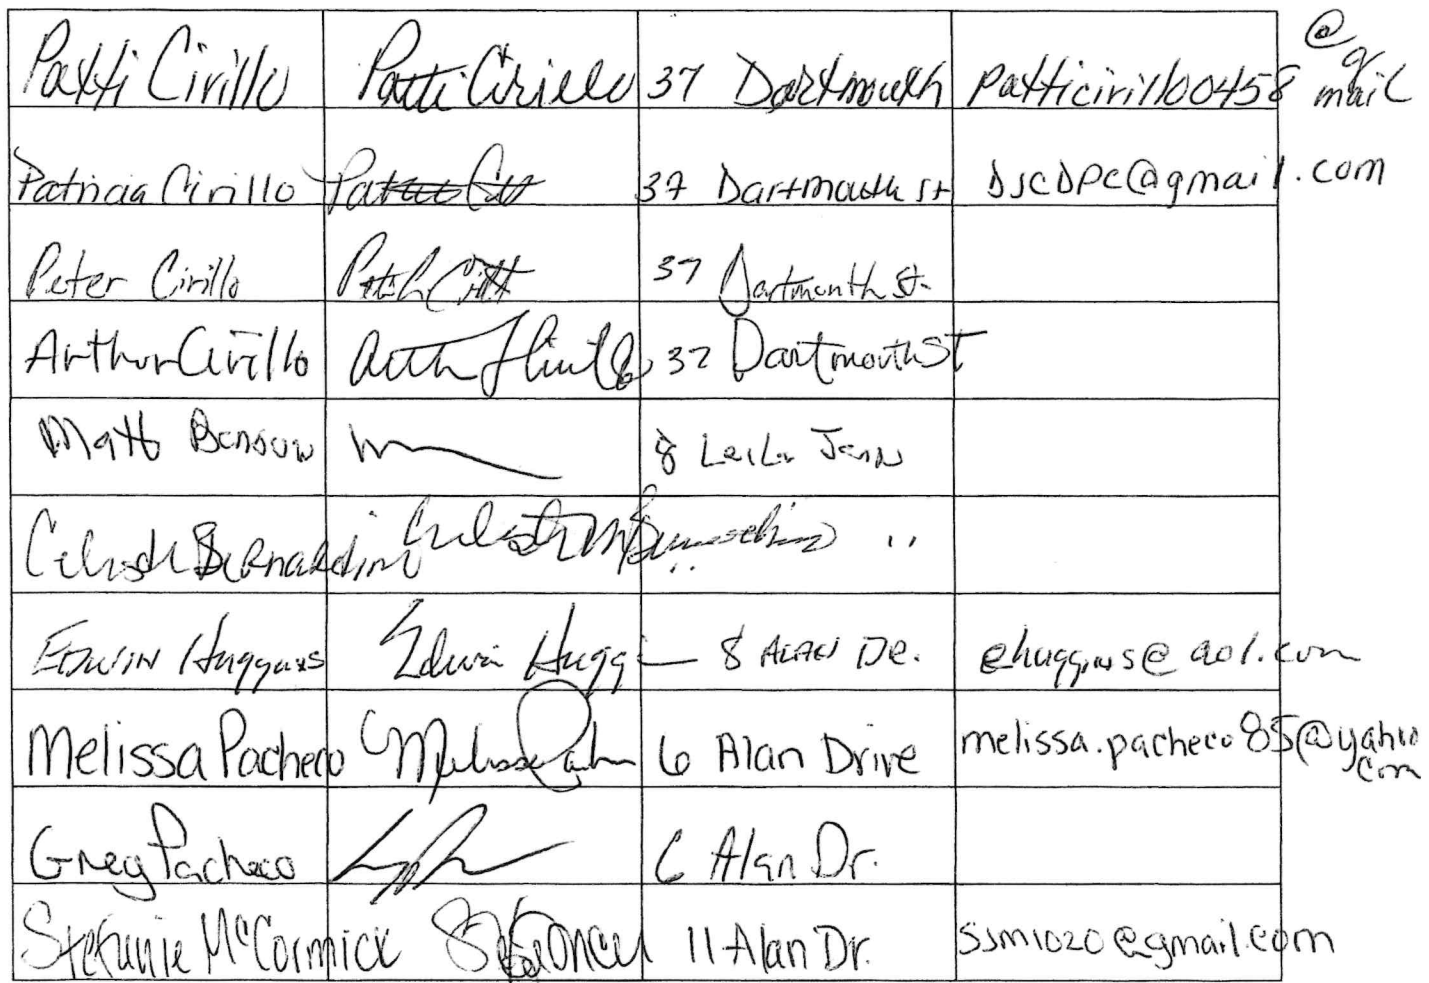 Patti Cirillo Patti Cirillo 37 Dartmouth patticirillo0458@gmail
Patricia Cirillo 37 Dartmouth St DJCDPC@gmail.com
Peter Cirillo 37 Dartmouth St.
Arthur Cirillo 37 Dartmouth ST
Matt Benson 8 Jean
Bernardini
Edwin Huggins Edwin Hugg 8 ALAN DR. ehuggins@aol.com
Melissa Pacheco Melissa 6 Alan Drive melissa.pacheco85@yahoo.com
Greg Pacheco 6 Alan Dr.
Stefanie McCormick 11 Alan Dr. SJM1020@gmail.com